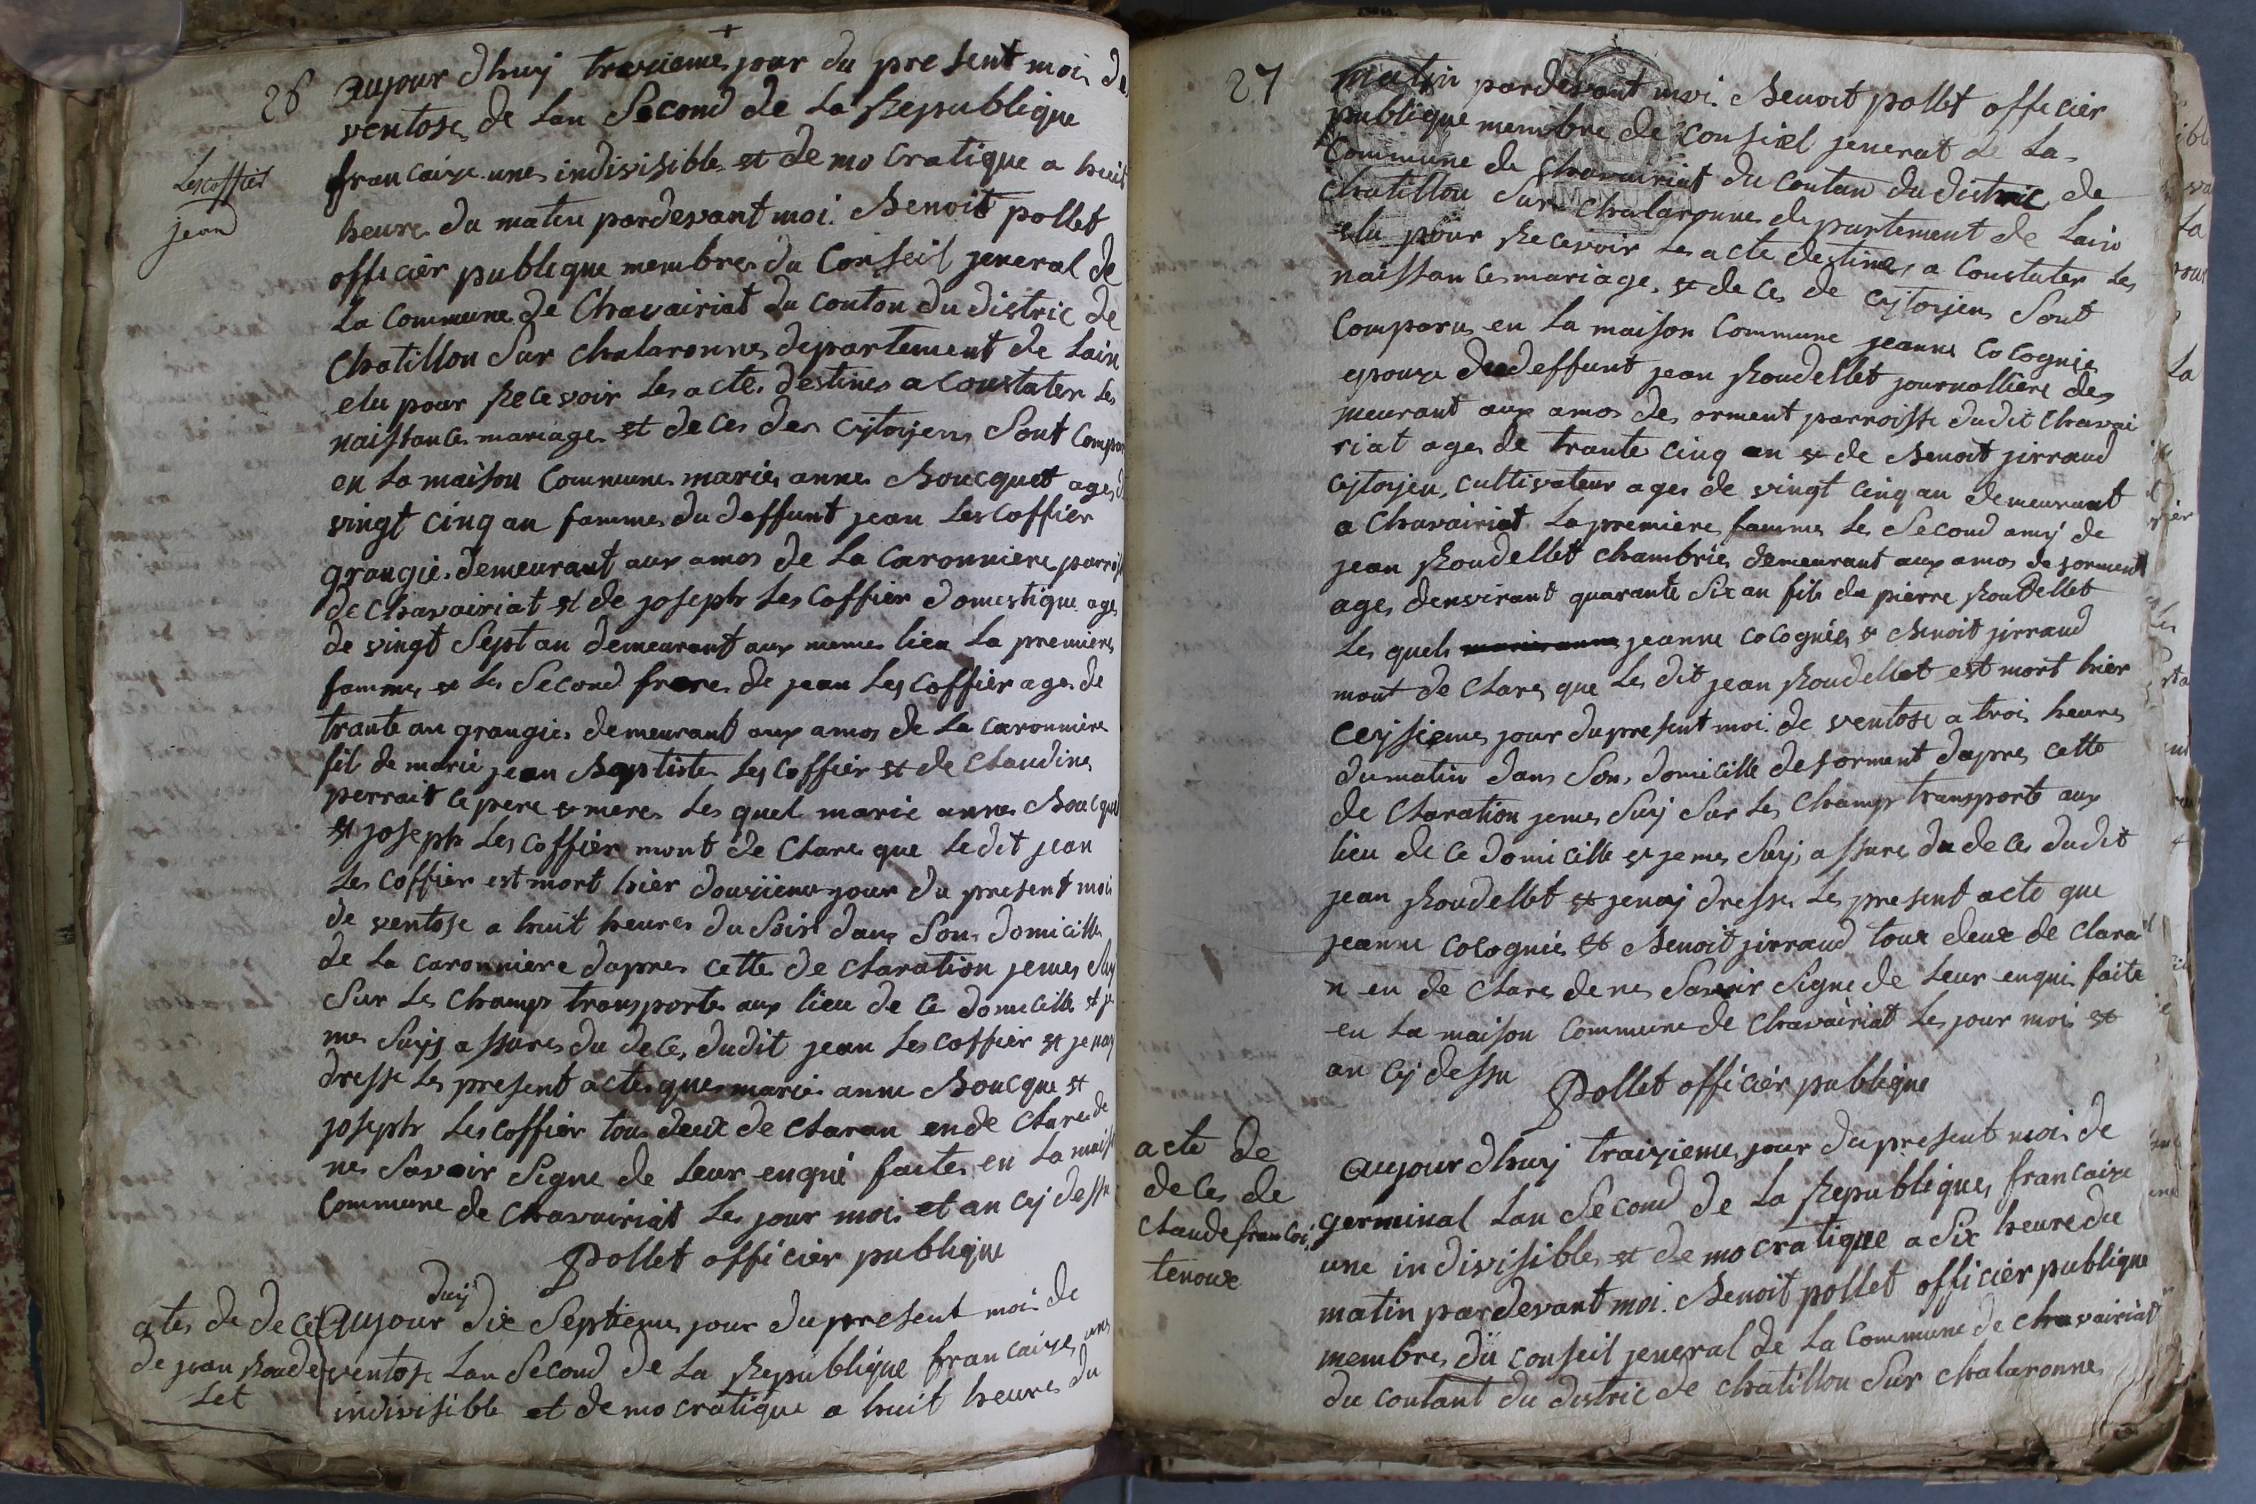 26
Lescoffier
jean
aujour dhuy traizieme jour du present moi de
ventose de Lan Second de La Republique
francaize une indivisible et de mo cratique a huit
heure du matin pardevant moi Benoit pollet
officièr publique membre du Conseil jeneral de
La Commune de Chavairiat du Conton du distric de
Chatillon Sur Chalaronne departement de Lain
elu pour Recevoir Les acte destines a Constater Les
naissance mariage et de ces des cytoyens Sont Compar
en La maison Commune marie anne Boucquet age d
vingt cinq an famme du deffunt jean Lescoffier
grangie demeurant aux amos de La Caronniere parroi
de Chavairiat et de joseph Les Coffier domestique age
de vingt Sept an demeurant aux meme lieu La premiere
famme et Le Second frere de jean Les Coffier age de
trante an grangie demeurant aux amos de La Caronniere
fil de marie jean Baptiste Les Coffier et de Claudine
perrait ce pere et mere Les quel marie anne Boucquet
et joseph Les Coffier mont de Clare que Le dit jean
Les Coffier est mort hier douzieme jour du present moi
de ventose a huit heures du Soir dans Son domicille
de La Caronniere dapres cette de claration jeme Suy
Sur Le Champ transporte aux lieu de Ce domicille et je
me Suys assure du deces dudit jean Les Coffier et jenay
dresse Le present acte que marie anne Boucque et
joseph Lescoffier tous deux de Claran en de Clare de
ne Savoir Signe de Leur enqui faite en La maison
Commune de Chavairiat Le jour moi et an Cy dessu
Pollet officier publique
ate de de ce
de jean Roude
Let
aujour duy dix Septieme jour du present moi de
ventose Lan Second de La Republique francaize une
indivisible et de mo cratique a huit heure du
27
matin pardevant moi Benoit pollet officièr
publique membre de Consiel jeneral de La
Commune de Chavairiat du Contan du distric de
Chatillon Sur Chalaronne departement de Lain
elu pour Recevoir Les acte destine a Constater Les
naissance mariage et de Ces de cytoyens Sont
Comparu en La maison Commune jeanne Colognie
epouze du deffunt jean Roudellet journalliere de
meurant aux amos de orment parroisse dudit Chavai
riat age de trante cinq an et de Benoit jirraud
cytoyen cultivateur age de vingt cinq an demeurant
a Chavairiat La premiere famme Le Second amy de
jean Roudellet Chambrie demeurant aux amos de sorment
age denvirant quarante Six an fils de pierre Roudellet
Les quels marie anne jeanne Cologniée et Benoit jirraud
mont de Clare que Le dit jean Roudellet est mort hier
ceysieme jour du present moi de ventose a troi heure
du matin dans Son domicille desorment dapres cette
de Claration jeme Suy Sur Le Champ transporte aux
lieu de Ce domicille et je me Suy assure du de ces dudit
jean Roudellet et jenay dresse Le present acte que
jeanne Cologniée et Benoit jirraud toux deux de Clara
n en de Clare de ne Savoir Signe de Leur enqui faite
en La maison Commune de Chavairiat Le jour moi et
an Cy dessu
Pollet officièr publique
acte de
de Ces de
Claude francoi
tenoux
aujour dhuy traizieme jour du present moi de
germinal Lan Second de La Republique francaize
une indivisible et de mo cratique a Six heure du
matin pardevant moi Benoit pollet officièr publique
membre du Conseil jeneral de La Commune de Chavairiat
du Contant du distric de Chatillon Sur Chalaronne